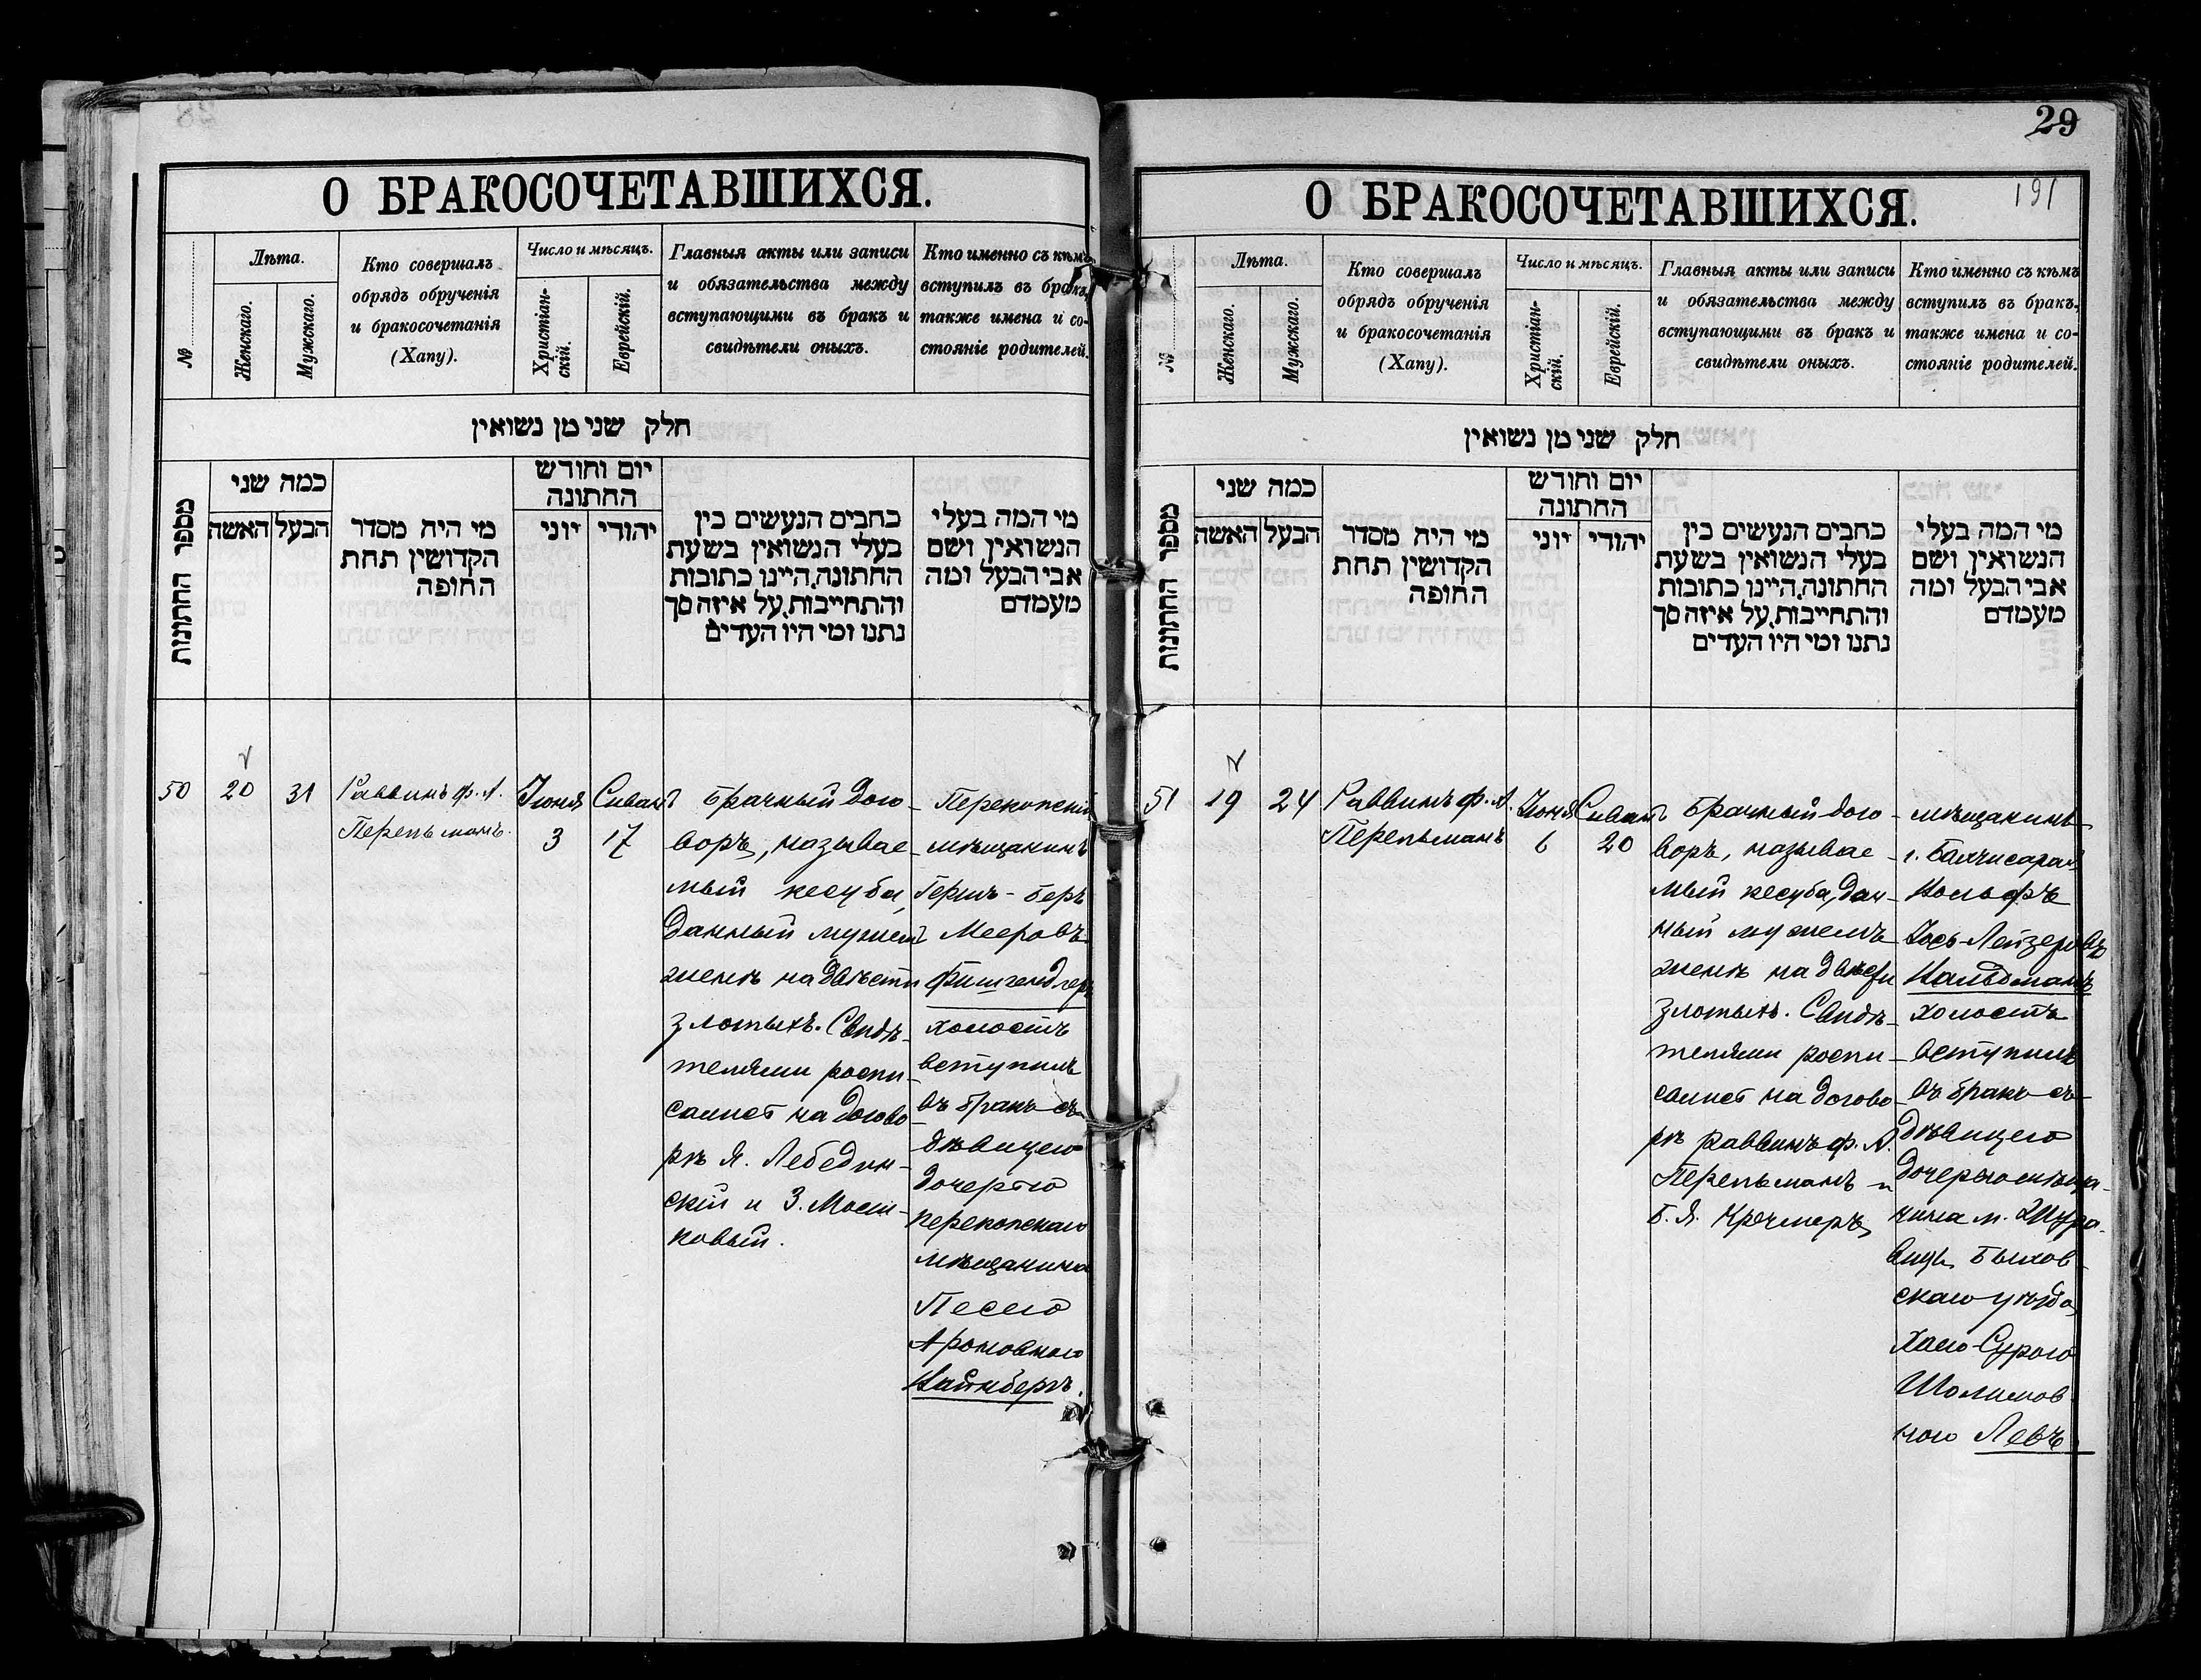 О БРАКОСОЧЕТАВШИХСЯ.
№
Лѣта.
Женскаго.
Мужскаго.
Кто совершалъ
обрядъ обрученія
и бракосочетанія
(Хапу).
Число и мѣсяцъ.
Христіан-
скій.
Еврейскій.
Главныя акты или записи
и обязательства между
вступающими въ бракъ и
свидѣтели оныхъ.
Кто именно съ кѣмъ
вступилъ въ бракъ,
также имена и со-
стояніе родителей.
חלק שני מן נשואין
מספר החתונות
כמה שני
האשה
הבעל
מי היה מסדר
הקדושין תחת
החופה
יום וחודש
החתונה
יוני
יהודי
כתבים הנעשים בין
בעלי הנשואין בשעת
החתונה, היינו כתובות
והתחייבות, על איזה סך
נתנו ומי היו העדים
מי המה בעלי
הנשואין ושם
אבי הבעל ומה
מעמדם
50
20
31
Раввинъ Ф. А.
Перельманъ.
Іюня
3
Сиванъ
17
Брачный дого-
воръ, называе-
мый кесуба,
данный мужемъ
женѣ на двѣсти
злотыхъ. Свидѣ-
телями роспи-
сались на догово-
рѣ Я. Лебедин-
скій и З. Мош-
ковый.
Перекопскій
мѣщанинъ
Гершъ-Беръ
Мееровъ
Фишгендлеръ
холостъ
вступилъ
въ бракъ съ
дѣвицею
дочерью
перекопскаго
мѣщанина
Песею
Ароновною
Вайнбергъ.
29
191
О БРАКОСОЧЕТАВШИХСЯ.
№
Лѣта.
Женскаго.
Мужскаго.
Кто совершалъ
обрядъ обрученія
и бракосочетанія
(Хапу).
Число и мѣсяцъ.
Христіан-
скій.
Еврейскій.
Главныя акты или записи
и обязательства между
вступающими въ бракъ и
свидѣтели оныхъ.
Кто именно съ кѣмъ
вступилъ въ бракъ,
также имена и со-
стояніе родителей.
חלק שני מן נשואין
מספר החתונות
כמה שני
האשה
הבעל
מי היה מסדר
הקדושין תחת
החופה
יום וחודש
החתונה
יוני
יהודי
כתבים הנעשים בין
בעלי הנשואין בשעת
החתונה, היינו כתובות
והתחייבות, על איזה סך
נתנו ומי היו העדים
מי המה בעלי
הנשואין ושם
אבי הבעל ומה
מעמדם
51
19
24
Раввинъ Ф. А.
Перельманъ
Іюня
6
Сиванъ
20
Брачный дого-
воръ, называе-
мый кесуба, дан-
ный мужемъ
женѣ на двѣсти
злотыхъ. Свидѣ-
телями роспи-
сались на догово-
рѣ раввинъ Ф. А.
Перельманъ и
Б. Я. Кречмеръ
мѣщанинъ
г. Бахчисарая
Вольфъ
Іось-Лейзеровъ
Вальдманъ
холостъ
вступилъ
въ бракъ съ
дѣвицею
дочерью мѣща-
нина м.
Быхов-
скаго уѣзда
Хаею-Сурою
Шолимов-
ною Левъ